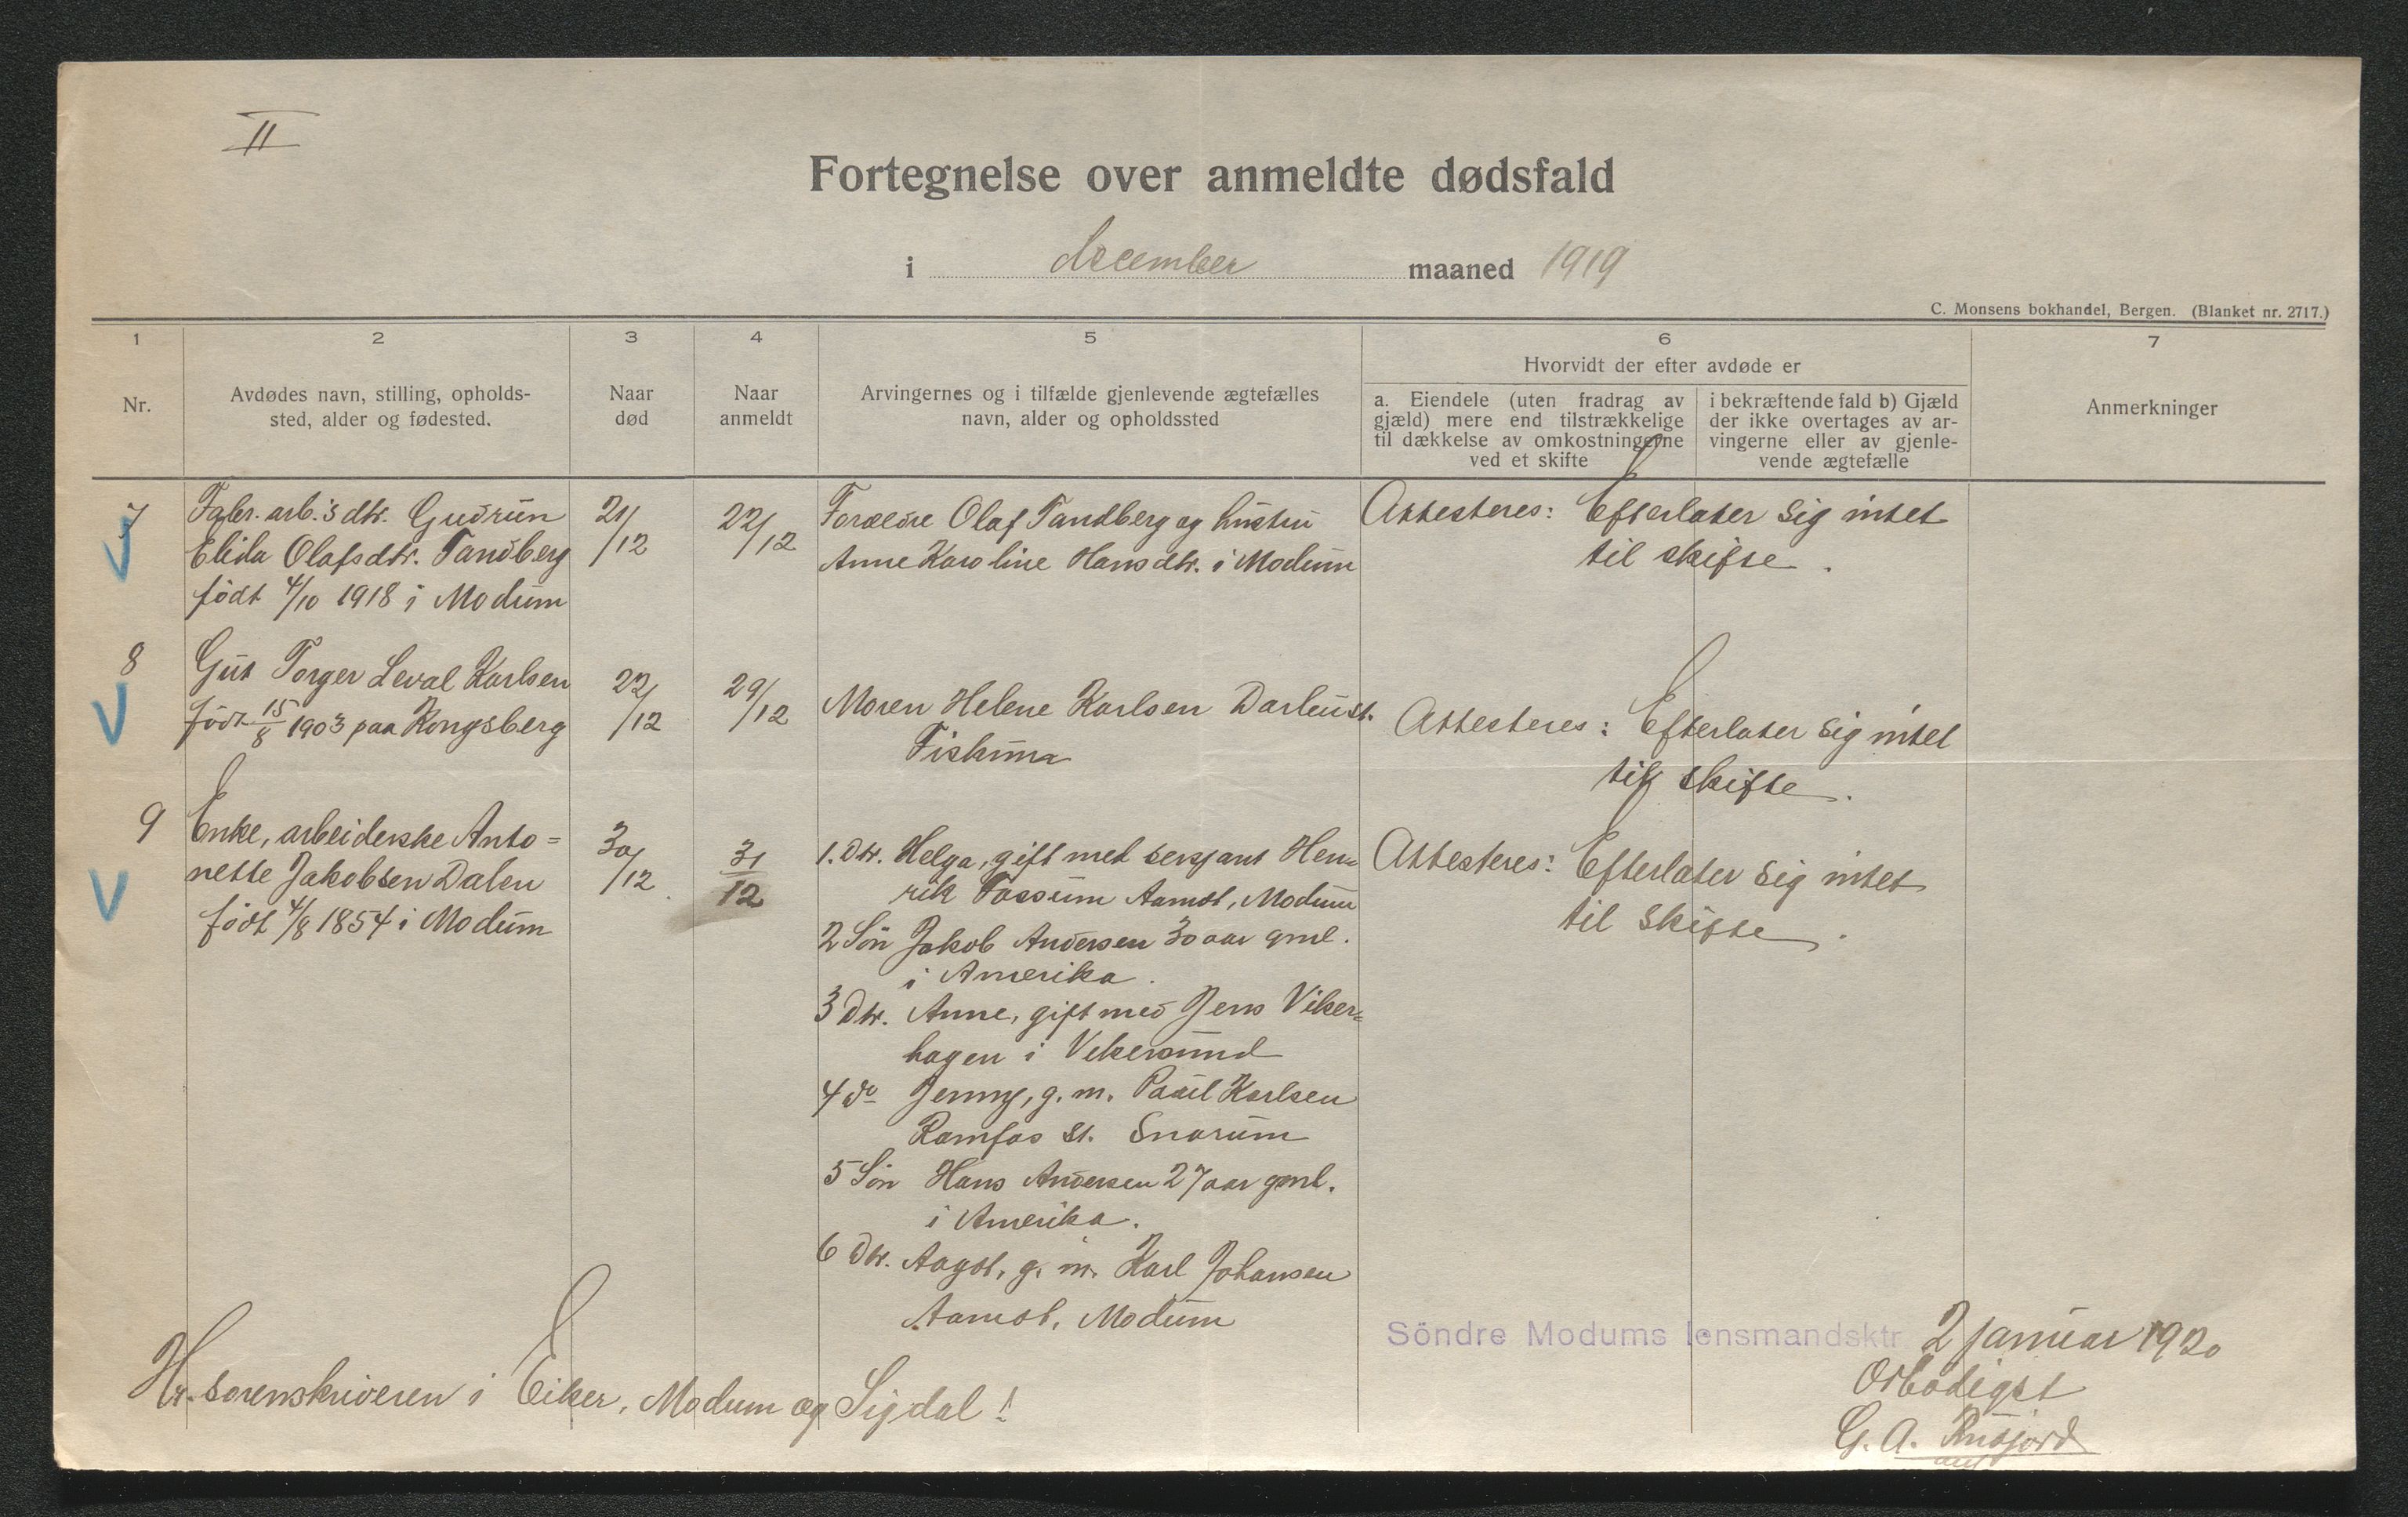 II
Fortegnelse over anmeldte dødsfald
i december maaned 1919
C. Monsens bokhandel, Bergen. (Blanket nr. 2717.)
1 2 3 4 5 6 7
Nr.
Avdødes navn, stilling, opholds-
sted, alder og fødested.
Naar
død
Naar
anmeldt
Arvingernes og i tilfælde gjenlevende ægtefælles
navn, alder og opholdssted
Hvorvidt der efter avdøde er
a. Eiendele (uten fradrag av
gjæld) mere end tilstrækkelige
til dækkelse av omkostningerne
ved et skifte
i bekræftende fald b) Gjæld
der ikke overtages av ar-
vingerne eller av gjenle-
vende ægtefælle
Anmerkninger
7
Fabr. arb.'s dtr. Gudrun
Elida Olafsdtr. Tandberg
født 4/10 1918 i Modum
21/12
22/12
Forældre Olaf Tandberg og hustru
Anne Karoline Hansdtr. i Modum
Attesteres: Efterlater sig intet
til skifte.
8
Gut Torger Leval Karlsen
født 15/8 1903 paa Kongsberg
22/12
29/12
Moren Helene Karlsen Darbu st.
Fiskum
Attesteres: Efterlater sig intet
til skifte.
9
Enke, arbeiderske Anto=
nette Jakobsen Dalen
født 4/8 1854 i Modum
30/12
31/12
1. Dtr. Helga, gift med sersjant Hen=
rik Fossum Aamot, Modum
2 Søn Jakob Andersen 30 aar gml.
i Amerika.
3 Dtr. Anne, gift med Jens Viker=
hagen i Vikersund
4 do Jenny, g. m. Paul Karlsen
Ramfos st. Snarum
5 Søn Hans Andersen 27 aar gml.
i Amerika.
6 Dtr. Aagot, g. m. Karl Johansen
Aamot, Modum
Attesteres: Efterlater sig intet
til skifte.
Söndre Modums lensmandsktr 2 januar 1920
Ærbødigst
G. A.
Hr. sorenskriveren i Eiker, Modum og Sigdal!